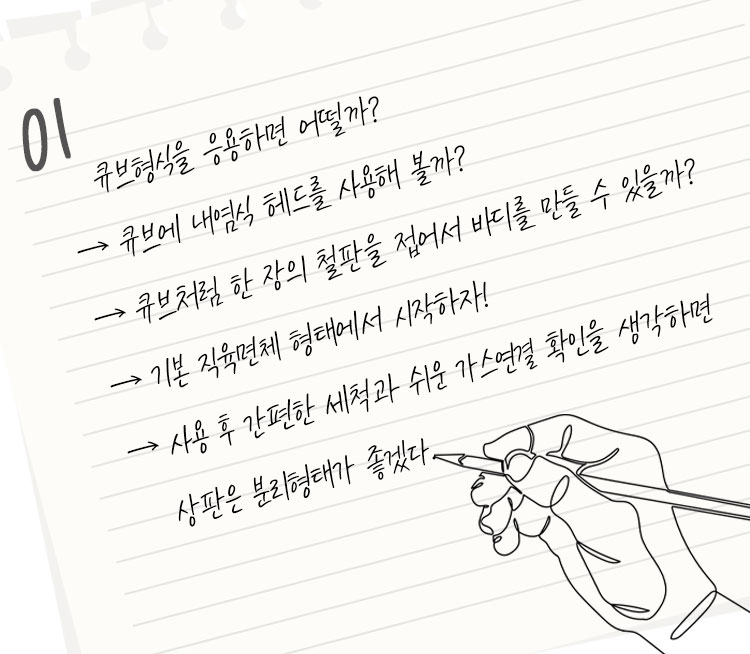 01
큐브형식을 응용하면 어떨까?
→ 큐브에 내염식 헤드를 사용해 볼까?
→ 큐브처럼 한 장의 철판을 접어서 바디를 만들 수 있을까?
→ 기본 직육면체 형태에서 시작하자!
→ 사용 후 간편한 세척과 쉬운 가스연결 확인을 생각하면
상판은 분리형태가 좋겠다.